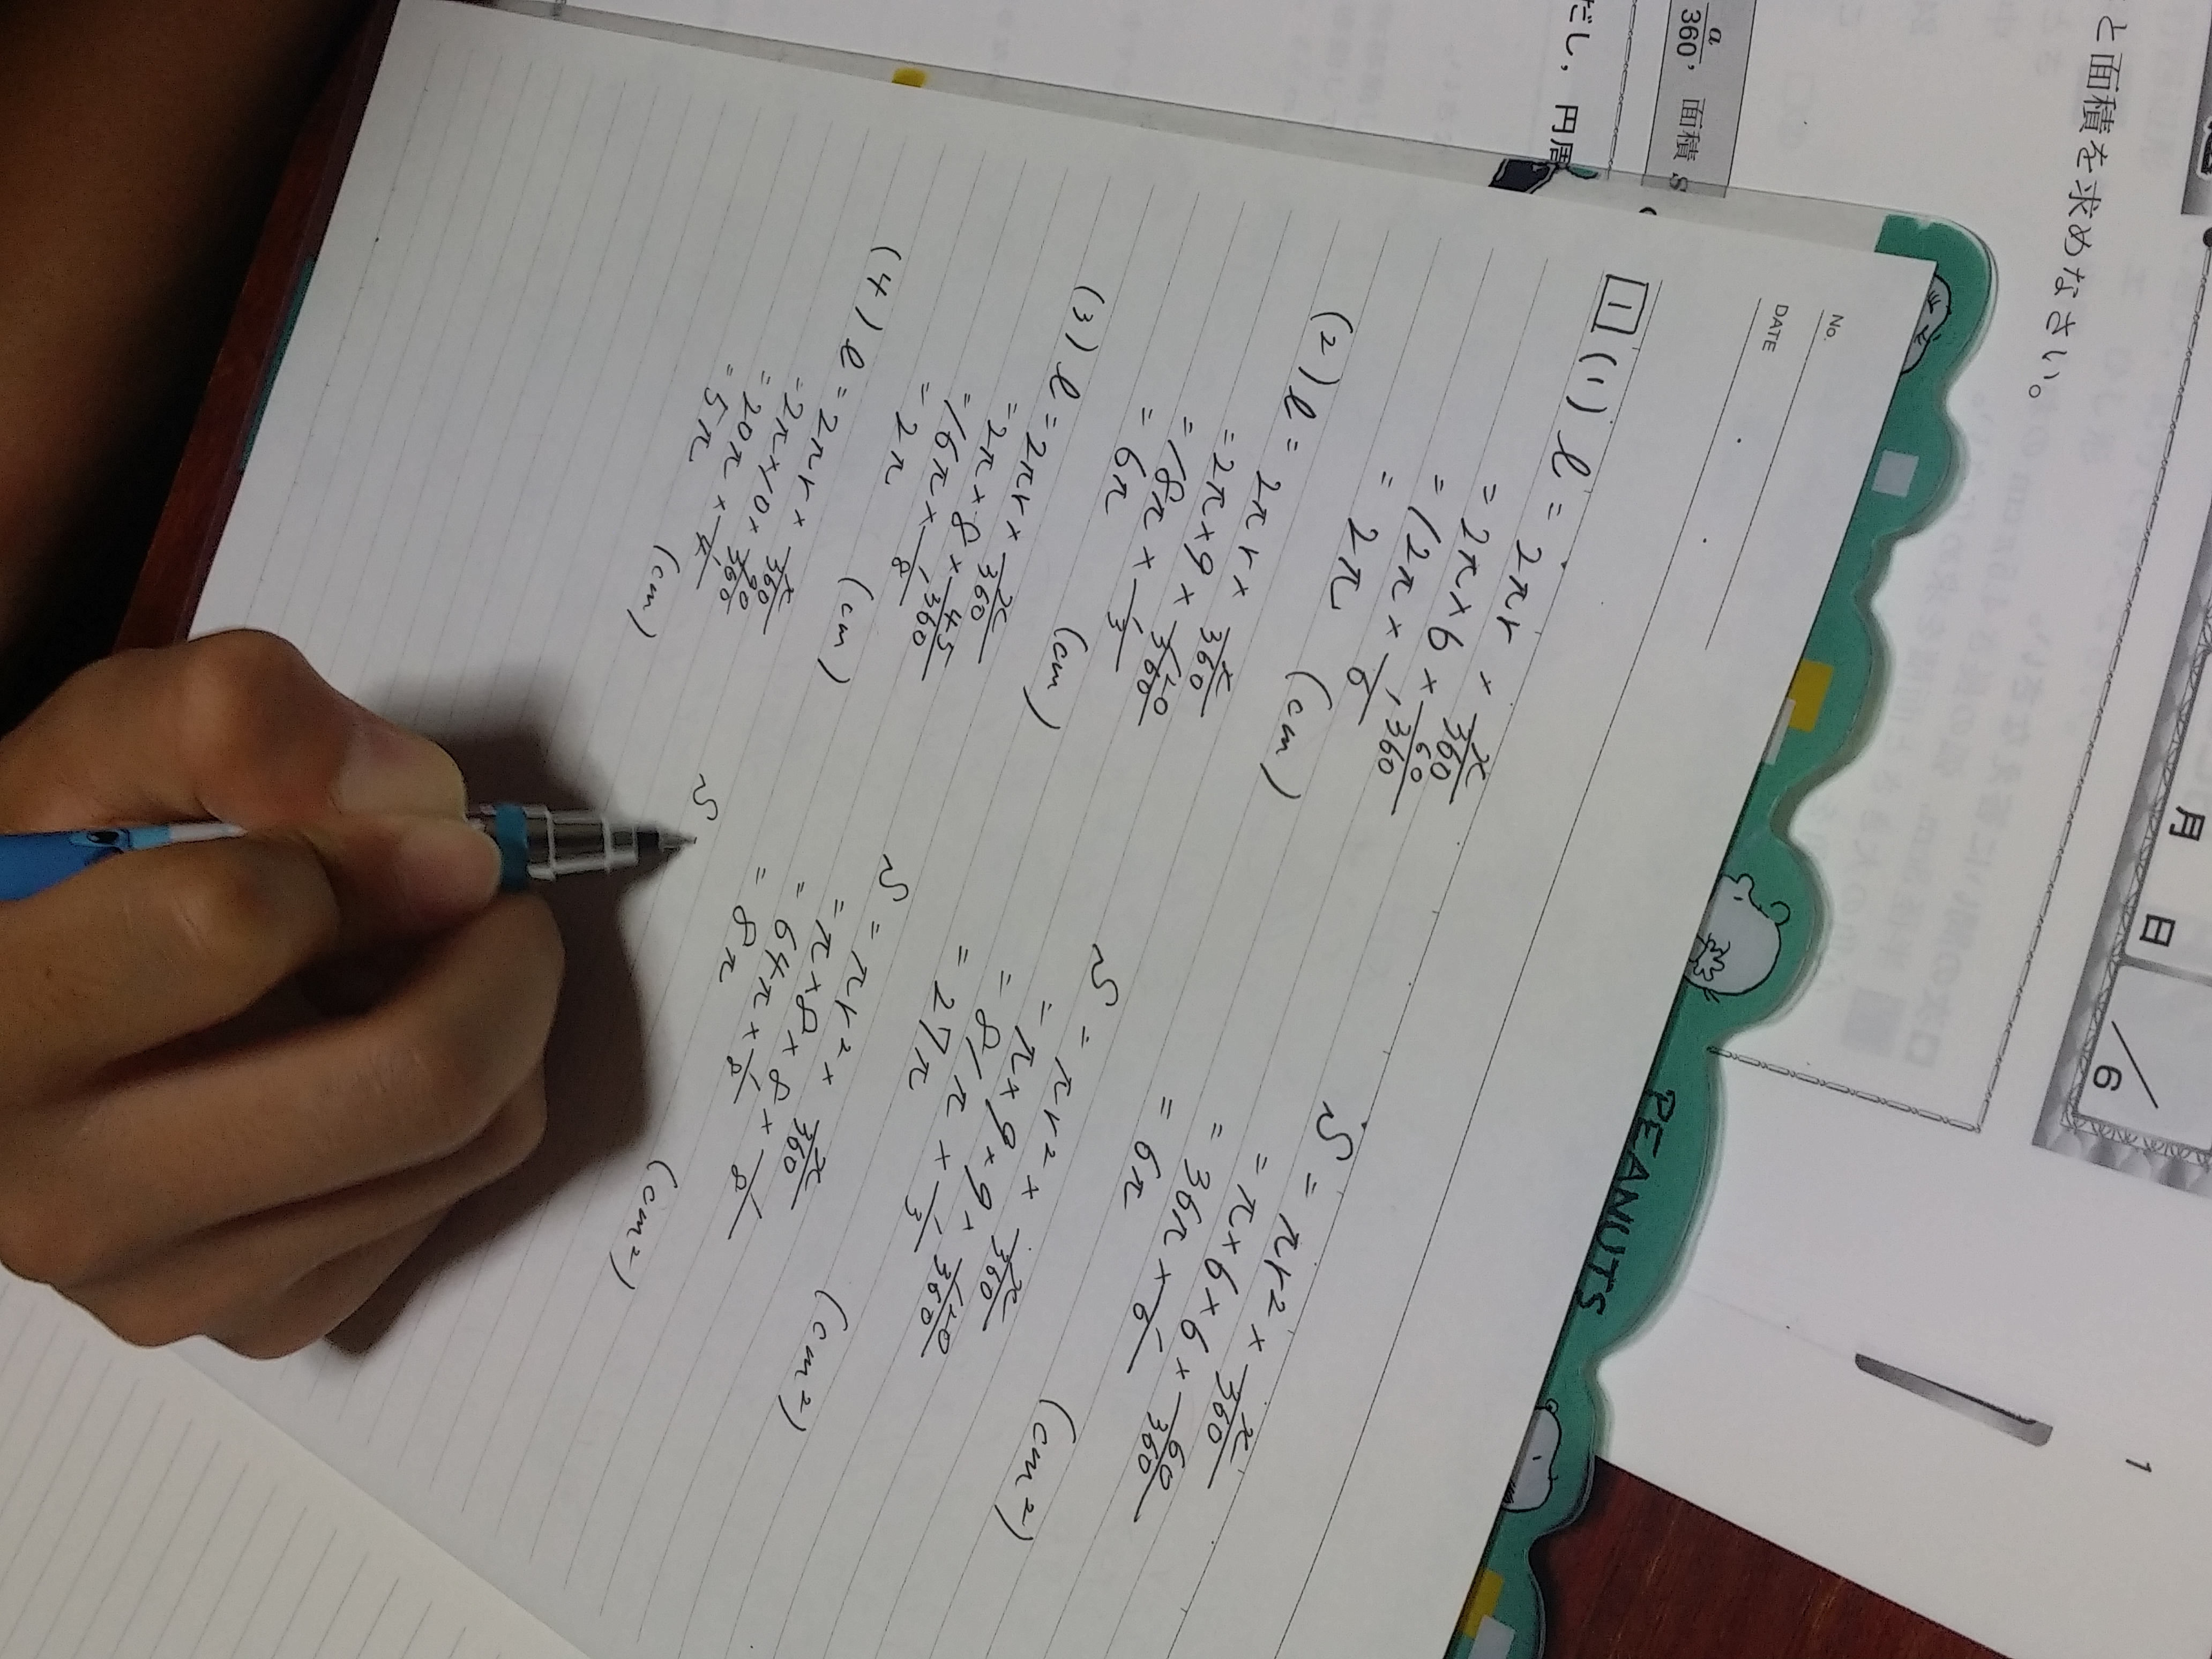 と面積を求めなさい。
月 日
/6
1
a/360, 面積 S
だし, 円周
PEANUTS
No.
DATE
1 (1) l = 2πr × x/360
= 2π × 6 × 60/360
= 12π × 1/6
= 2π (cm)
S = πr² × x/360
= π × 6 × 6 × 60/360
= 36π × 1/6
= 6π (cm²)
(2) l = 2πr × x/360
= 2π × 9 × 120/360
= 18π × 1/3
= 6π (cm)
S = πr² × x/360
= π × 9 × 9 × 120/360
= 81π × 1/3
= 27π (cm²)
(3) l = 2πr × x/360
= 2π × 8 × 45/360
= 16π × 1/8
= 2π (cm)
S = πr² × x/360
= π × 8 × 8 × 1/8
= 64π × 1/8
= 8π (cm²)
(4) l = 2πr × x/360
= 2π × 10 × 90/360
= 20π × 1/4
= 5π (cm)
S